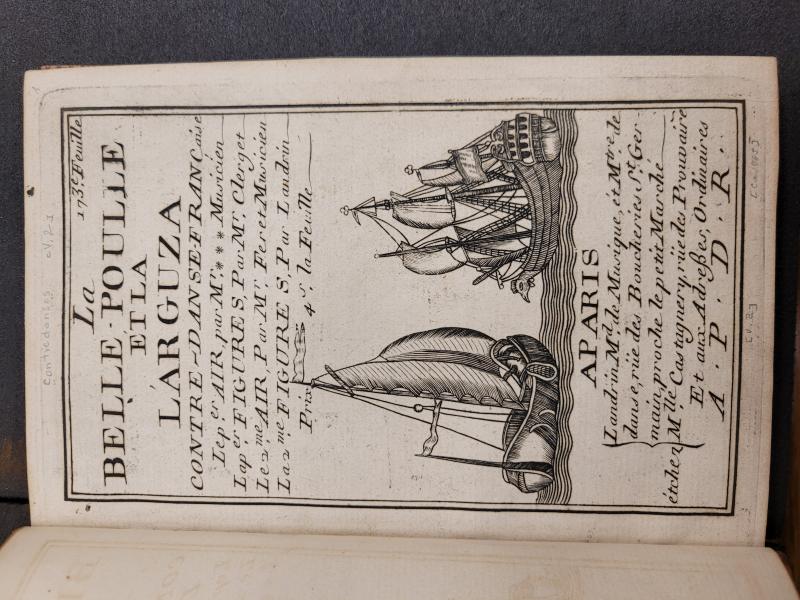 Contredanses cV.2-1
173e. Feuille
La
BELLE-POULLE
ET LA
L'ARGUZA
CONTRE-DANSE-FRANÇaise
Le per AIR, par Mr. *** Musicien
La per FIGURES, Par Mr. Clerget
Le 2me AIR, Par Mr. Fer et Musicien
La 2me FIGURES, Par Landrin
Prix 4s. la Feuille
A PARIS
Landrin Md. de Musique, et Mtre de
danse, rüe des Boucheries St. Ger-
main, proche le petit Marché
et chez Mlle Castagnery, rüe des Prouvaire
Et aux Adresses, Ordinaires
A . P . D . R .
[v.2]